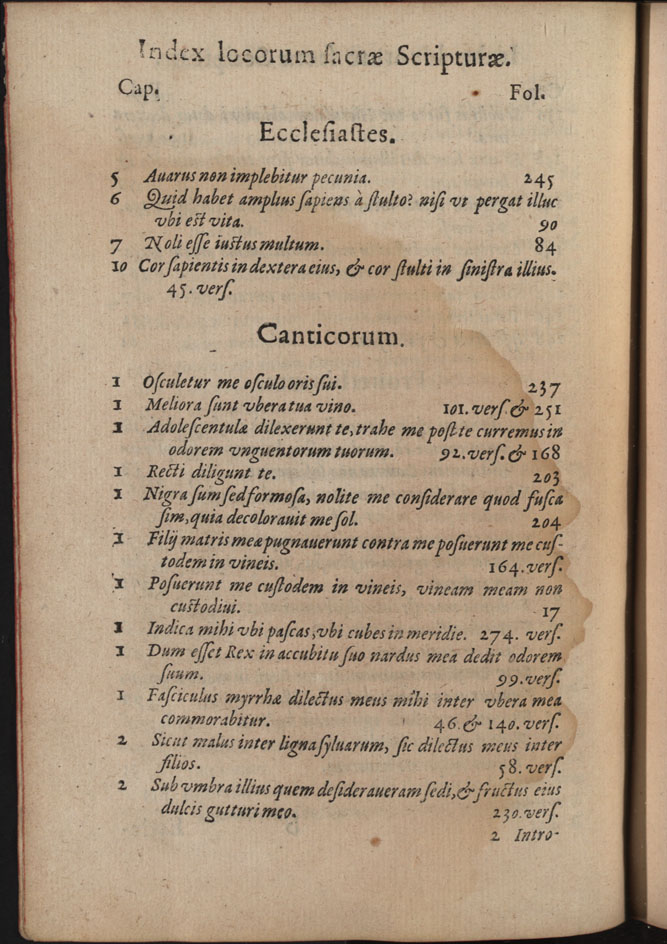 Index locorum sacræ Scripturæ.
Cap. Fol.
Ecclesiastes.
5 Auarus non implebitur pecunia. 245
6 Quid habet amplius sapiens à stulto? nisi vt pergat illuc
vbi est vita. 90
7 Noli esse iustus multum. 84
10 Cor sapientis in dextera eius, & cor stulti in sinistra illius.
45. vers.
Canticorum.
1 Osculetur me osculo oris sui. 237
1 Meliora sunt vbera tua vino. 101. vers. & 251
1 Adolescentulæ dilexerunt te, trahe me post te curremus in
odorem vnguentorum tuorum. 92. vers. & 168
1 Recti diligunt te. 203
1 Nigra sum sed formosa, nolite me considerare quod fusca
sim, quia decolorauit me sol. 204
1 Filij matris meæ pugnauerunt contra me posuerunt me cus-
todem in vineis. 164. vers.
1 Posuerunt me custodem in vineis, vineam meam non
custodiui. 17
1 Indica mihi vbi pascas, vbi cubes in meridie. 274. vers.
1 Dum esset Rex in accubitu suo nardus mea dedit odorem
suum. 99. vers.
1 Fasciculus myrrhæ dilectus meus mihi inter vbera mea
commorabitur. 46. & 140. vers.
2 Sicut malus inter ligna syluarum, sic dilectus meus inter
filios. 58. vers.
2 Sub vmbra illius quem desideraueram sedi, & fructus eius
dulcis gutturi meo. 230. vers.
2 Intro-